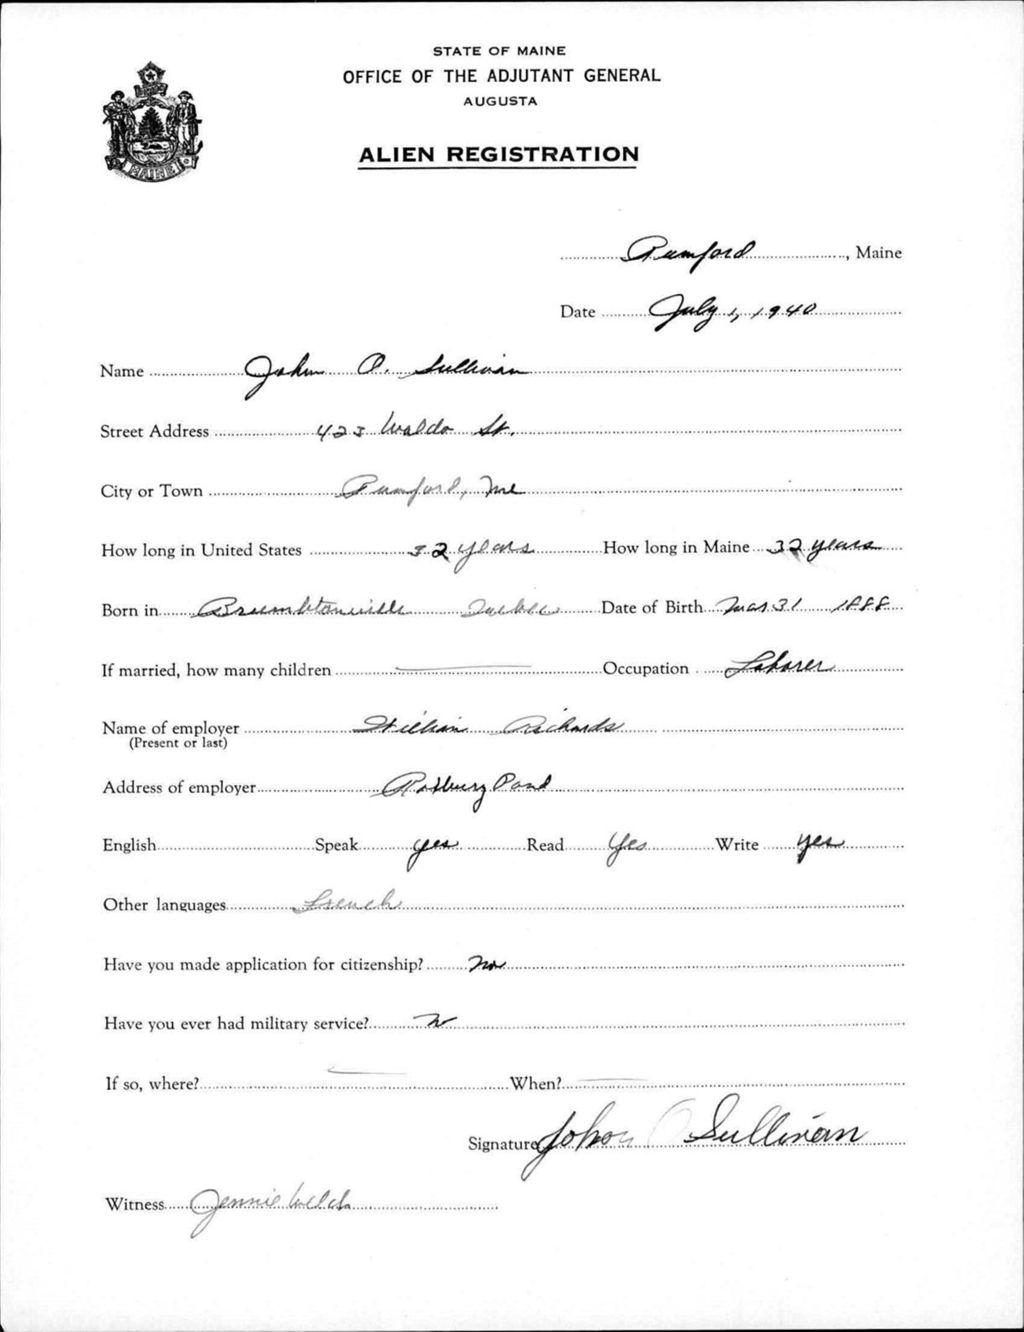 STATE OF MAINE
OFFICE OF THE ADJUTANT GENERAL
AUGUSTA
ALIEN REGISTRATION
MAINE
Rumford, Maine
Date July 1, 1940
Name John O. Sullivan
Street Address 423 Waldo St.
City or Town Rumford, Me
How long in United States 32 years How long in Maine 32 years
Born in Bromptonville Quebec Date of Birth Mar 31 1888
If married, how many children Occupation Laborer
Name of employer William Richards
(Present or last)
Address of employer Roxbury Pond
English Speak yes Read Yes Write yes
Other languages French
Have you made application for citizenship? No
Have you ever had military service? No
If so, where? When?
Signature John O Sullivan
Witness Jennie Welch